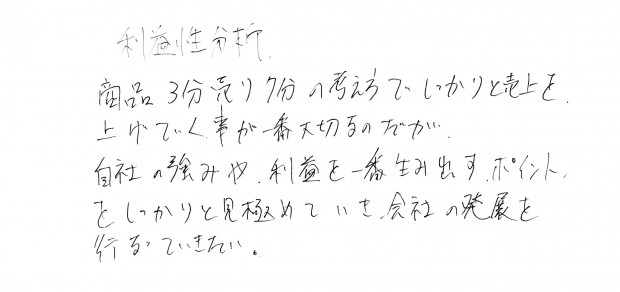 利益性分析.
商品 3分売り7分の考え方でしっかりと売上を.
上げていく事が一番大切なのだが.
自社の強みや.利益を一番生み出す.ポイント.
をしっかりと見極めていき.会社の発展を
行なっていきたい。